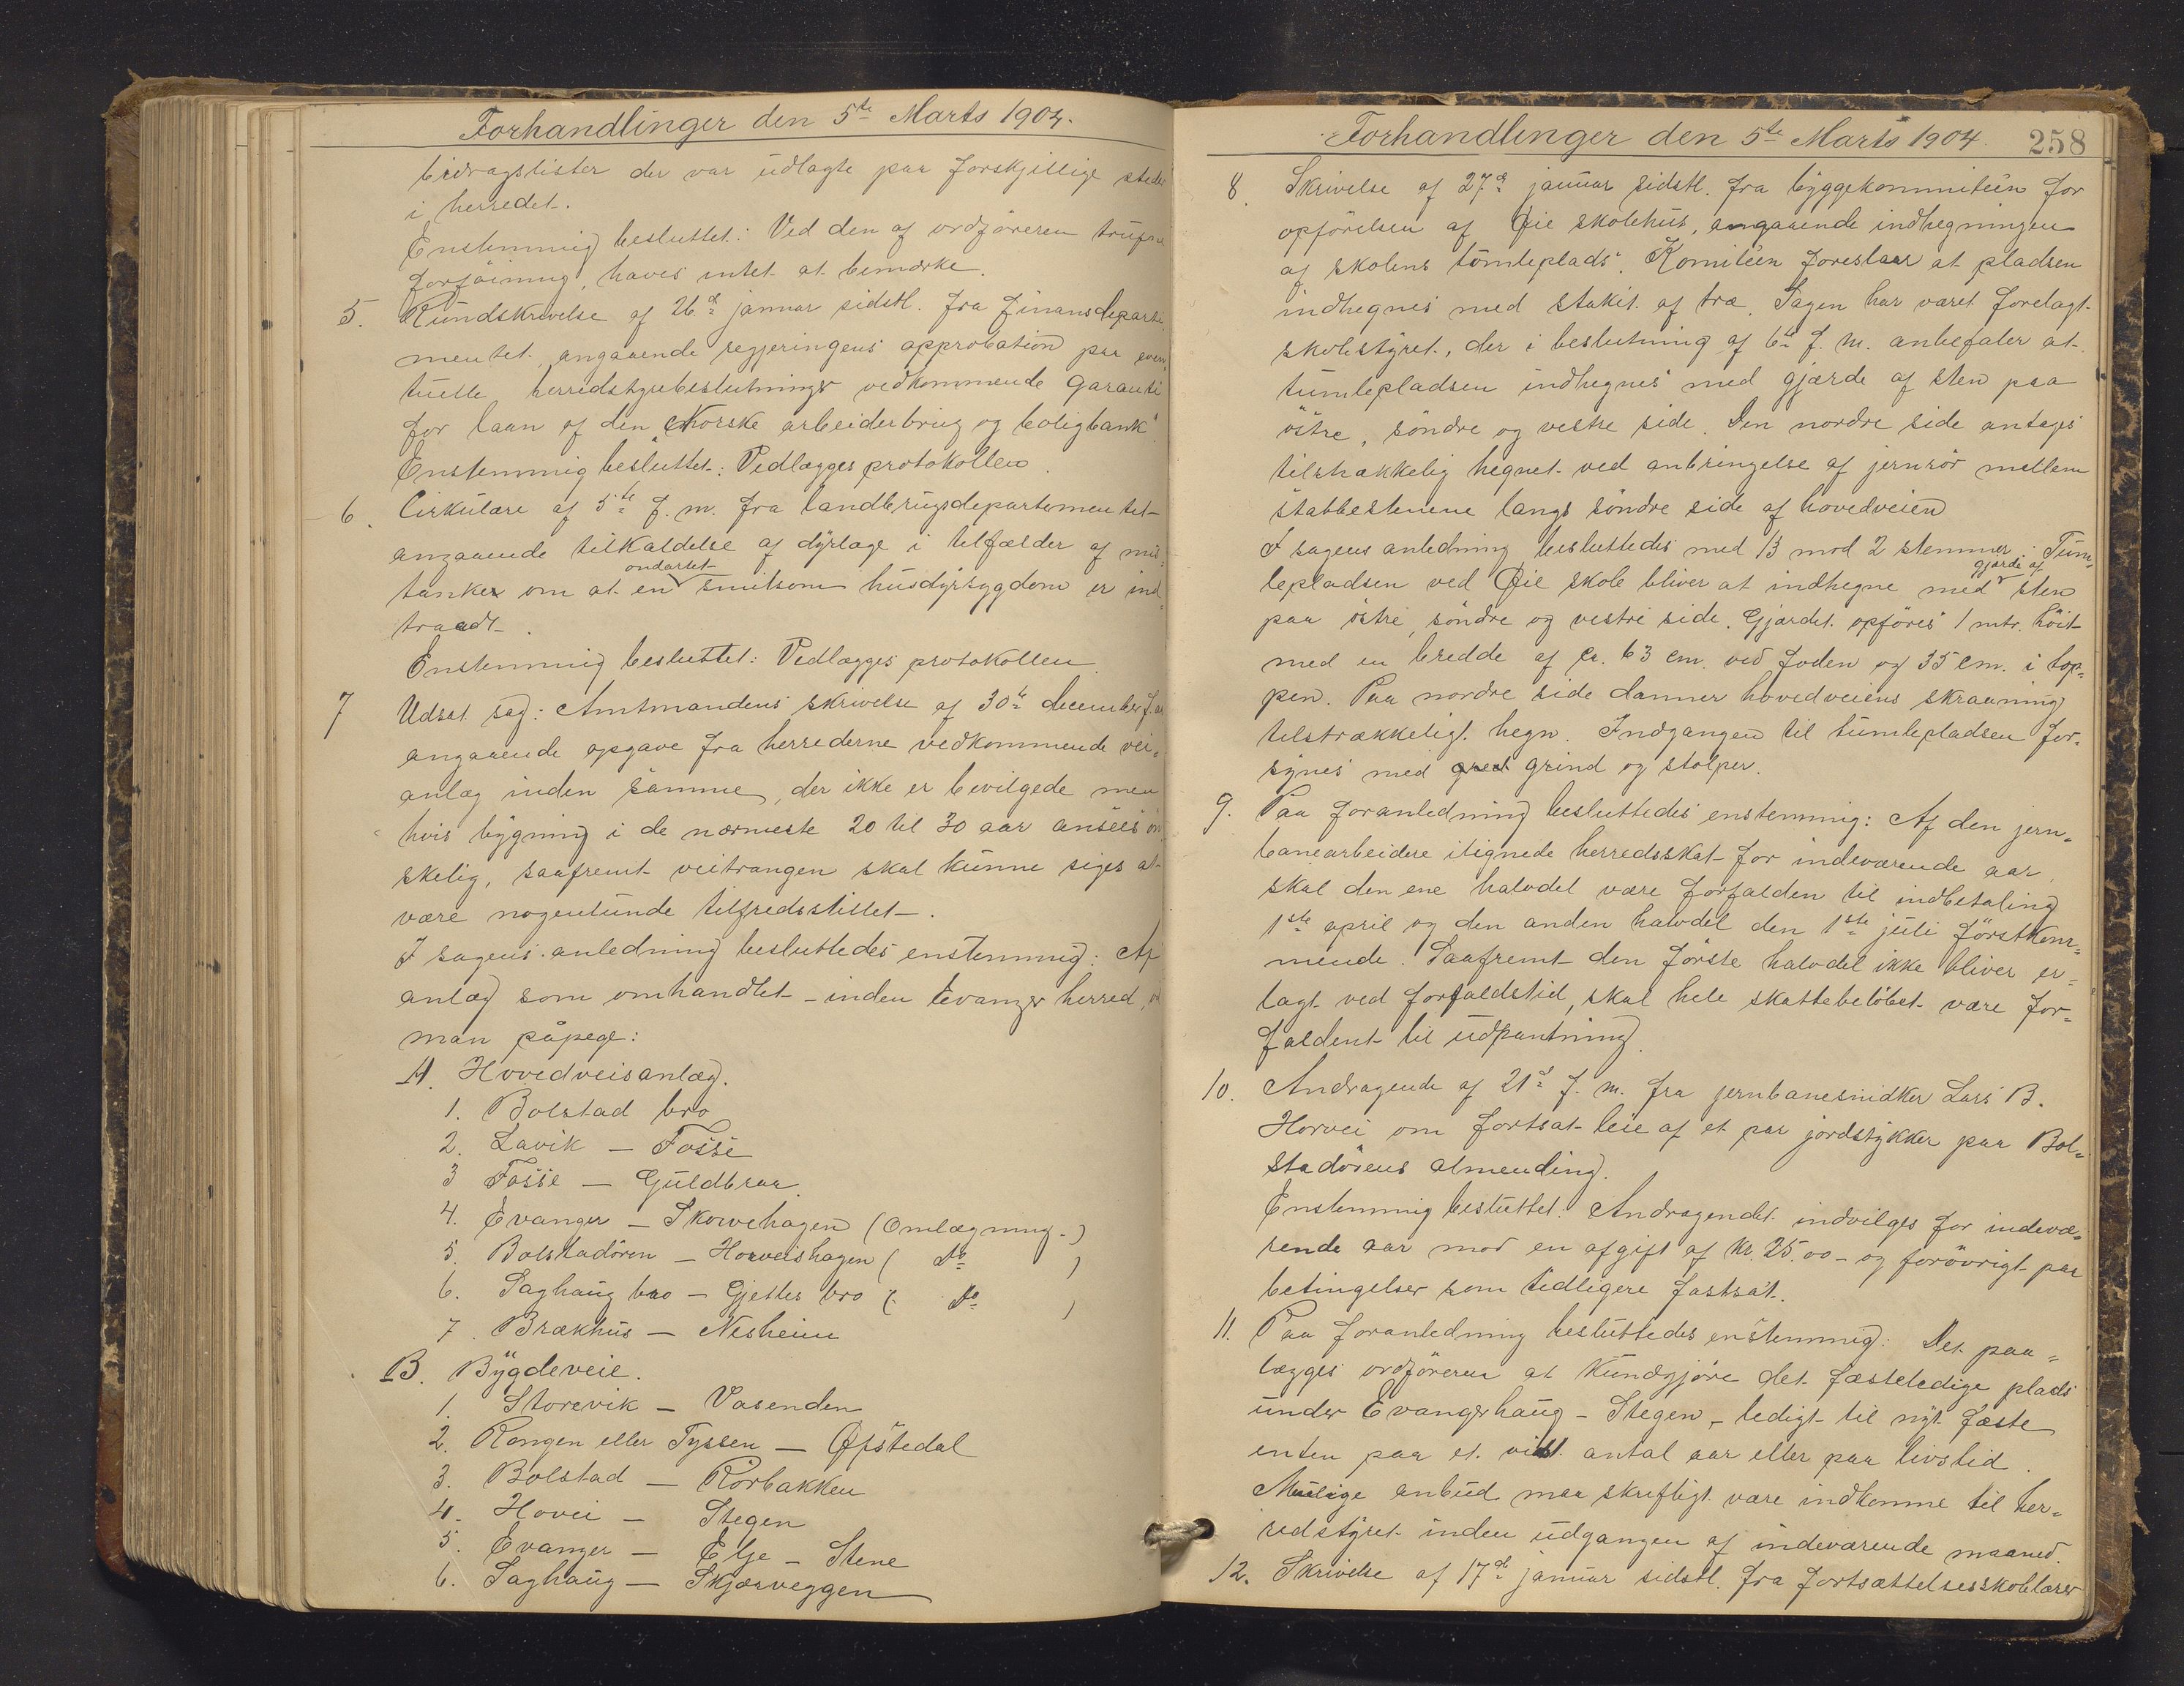 Forhandlinger den 5te Marts 1904.
bidragslister der var udlagte paa forskjellige steder
i herredet.
Enstemmig besluttet: Ved den af ordföreren trufne
forföining, haves intet at bemærke.
5. Rundskrivelse af 26de januar sidstl. fra finansdeparte
mentet, angaaende regjeringens approbation paa even
tuelle herredstyrebeslutninger vedkommende garanti
for laan af den "Norske arbeiderbrug og boligbank"
Enstemmig besluttet: Vedlægges protokollen.
6. Cirkulære af 5te f. m. fra landbrugsdepartementet
angaaende tilkaldelse af dyrlæge i tilfælder af mis=
ondartet
tanker om at en smitsom husdyrsygdom er ind=
traadt.
Enstemmig besluttet: Vedlægges protokollen.
7 Udsat sag: Amtmandens skrivelse af 30te december f. a.
angaaende opgave fra herrederne vedkommende vei=
anlæg inden samme, der ikke er bevilgede men
hvis bygning i de nærmeste 20 til 30 aar ansees øn
skelig, saafremt veitrangen skal kunne siges at
være nogenlunde tilfredsstillet.
I sagens anledning besluttedes enstemmig: Af
anlæg som omhandlet - inden Evanger herred, vil
man påpege:
A. Hovedveisanlæg.
1. Bolstad bro
2. Lavik — Fosse
3 Fosse — Guldbraa.
4. Evanger — Skorvehagen (Omlægning.)
5. Bolstadören — Horveishagen ( do )
6. Saghaug bro — Gjelles bro ( do )
7. Brækhus — Nesheim
B. Bygdeveie.
1. Storevik — Vasenden
2. Rongen eller Tyssen — Øfstedal
3. Bolstad — Rörbakken
4. Hovei — Stegen
5. Evanger — Elje — Stene
6. Saghaug — Skjærveggen
Forhandlinger den 5te Marts 1904. 258
8. Skrivelse af 27de januar sidstl. fra byggekommiteén for
opförelsen af Øie skolehus, angaaende indhegningen
af skolens tomleplads. Komiteén foreslaar at pladsen
indhegnes med stakit af træ. Sagen har været forelagt
skolestyret, der i beslutning af 6te f. m. anbefaler at
tumlepladsen indhegnes med gjærde af sten paa
östre, söndre og vestre side. Den nordre side antages
tilstrækkelig hegnet ved anbringelse af jernrör mellem
stabbestenene langs söndre side af hovedveien
I sagens anledning besluttedes med 13 mod 2 stemmer: Tum=
gjærde af
lepladsen ved Øie skole bliver at indhegne med sten
paa östre, söndre og vestre side. Gjærdet opföres 1 mtr. höit
med en bredde af ca. 63 cm. ved foden og 35 cm. i top=
pen. Paa nordre side danner hovedveiens skraaning
tilstrækkeligt hegn. Indgangen til tumlepladsen for=
synes med grind og stolper.
9. Paa foranledning besluttedes enstemmig: Af den jern=
banearbeidere ilignede herredsskat for indeværende aar,
skal den ene halvdel være forfalden til indbetaling
1ste april og den anden halvdel den 1ste juli förstkom=
mende. Saafremt den förste halvdel ikke bliver er=
lagt ved forfaldstid, skal hele skattebelöbet være for=
faldent til udpantning.
10. Andragende af 21de f. m. fra jernbanesnidker Lars B.
Horvei om fortsat leie af et par jordstykker paa Bol=
stadörens almending.
Enstemmig besluttet: Andragendet indvilges for indevæ=
rende aar mod en afgift af kr. 25.00 - og forövrigt paa
betingelser som tidligere fastsat.
11. Paa foranledning besluttedes enstemmig: Det paa=
lægges ordföreren at kundgjöre det fæsteledige plads
under Evangerhaug - Stegen - ledigt til nyt fæste
enten paa et vist antal aar eller paa livstid.
Mulige anbud maa skriftligt være indkomne til her=
redstyret inden udgangen af indeværende maaned.
12. Skrivelse af 17de januar sidstl. fra fortsættelsesskolelærer